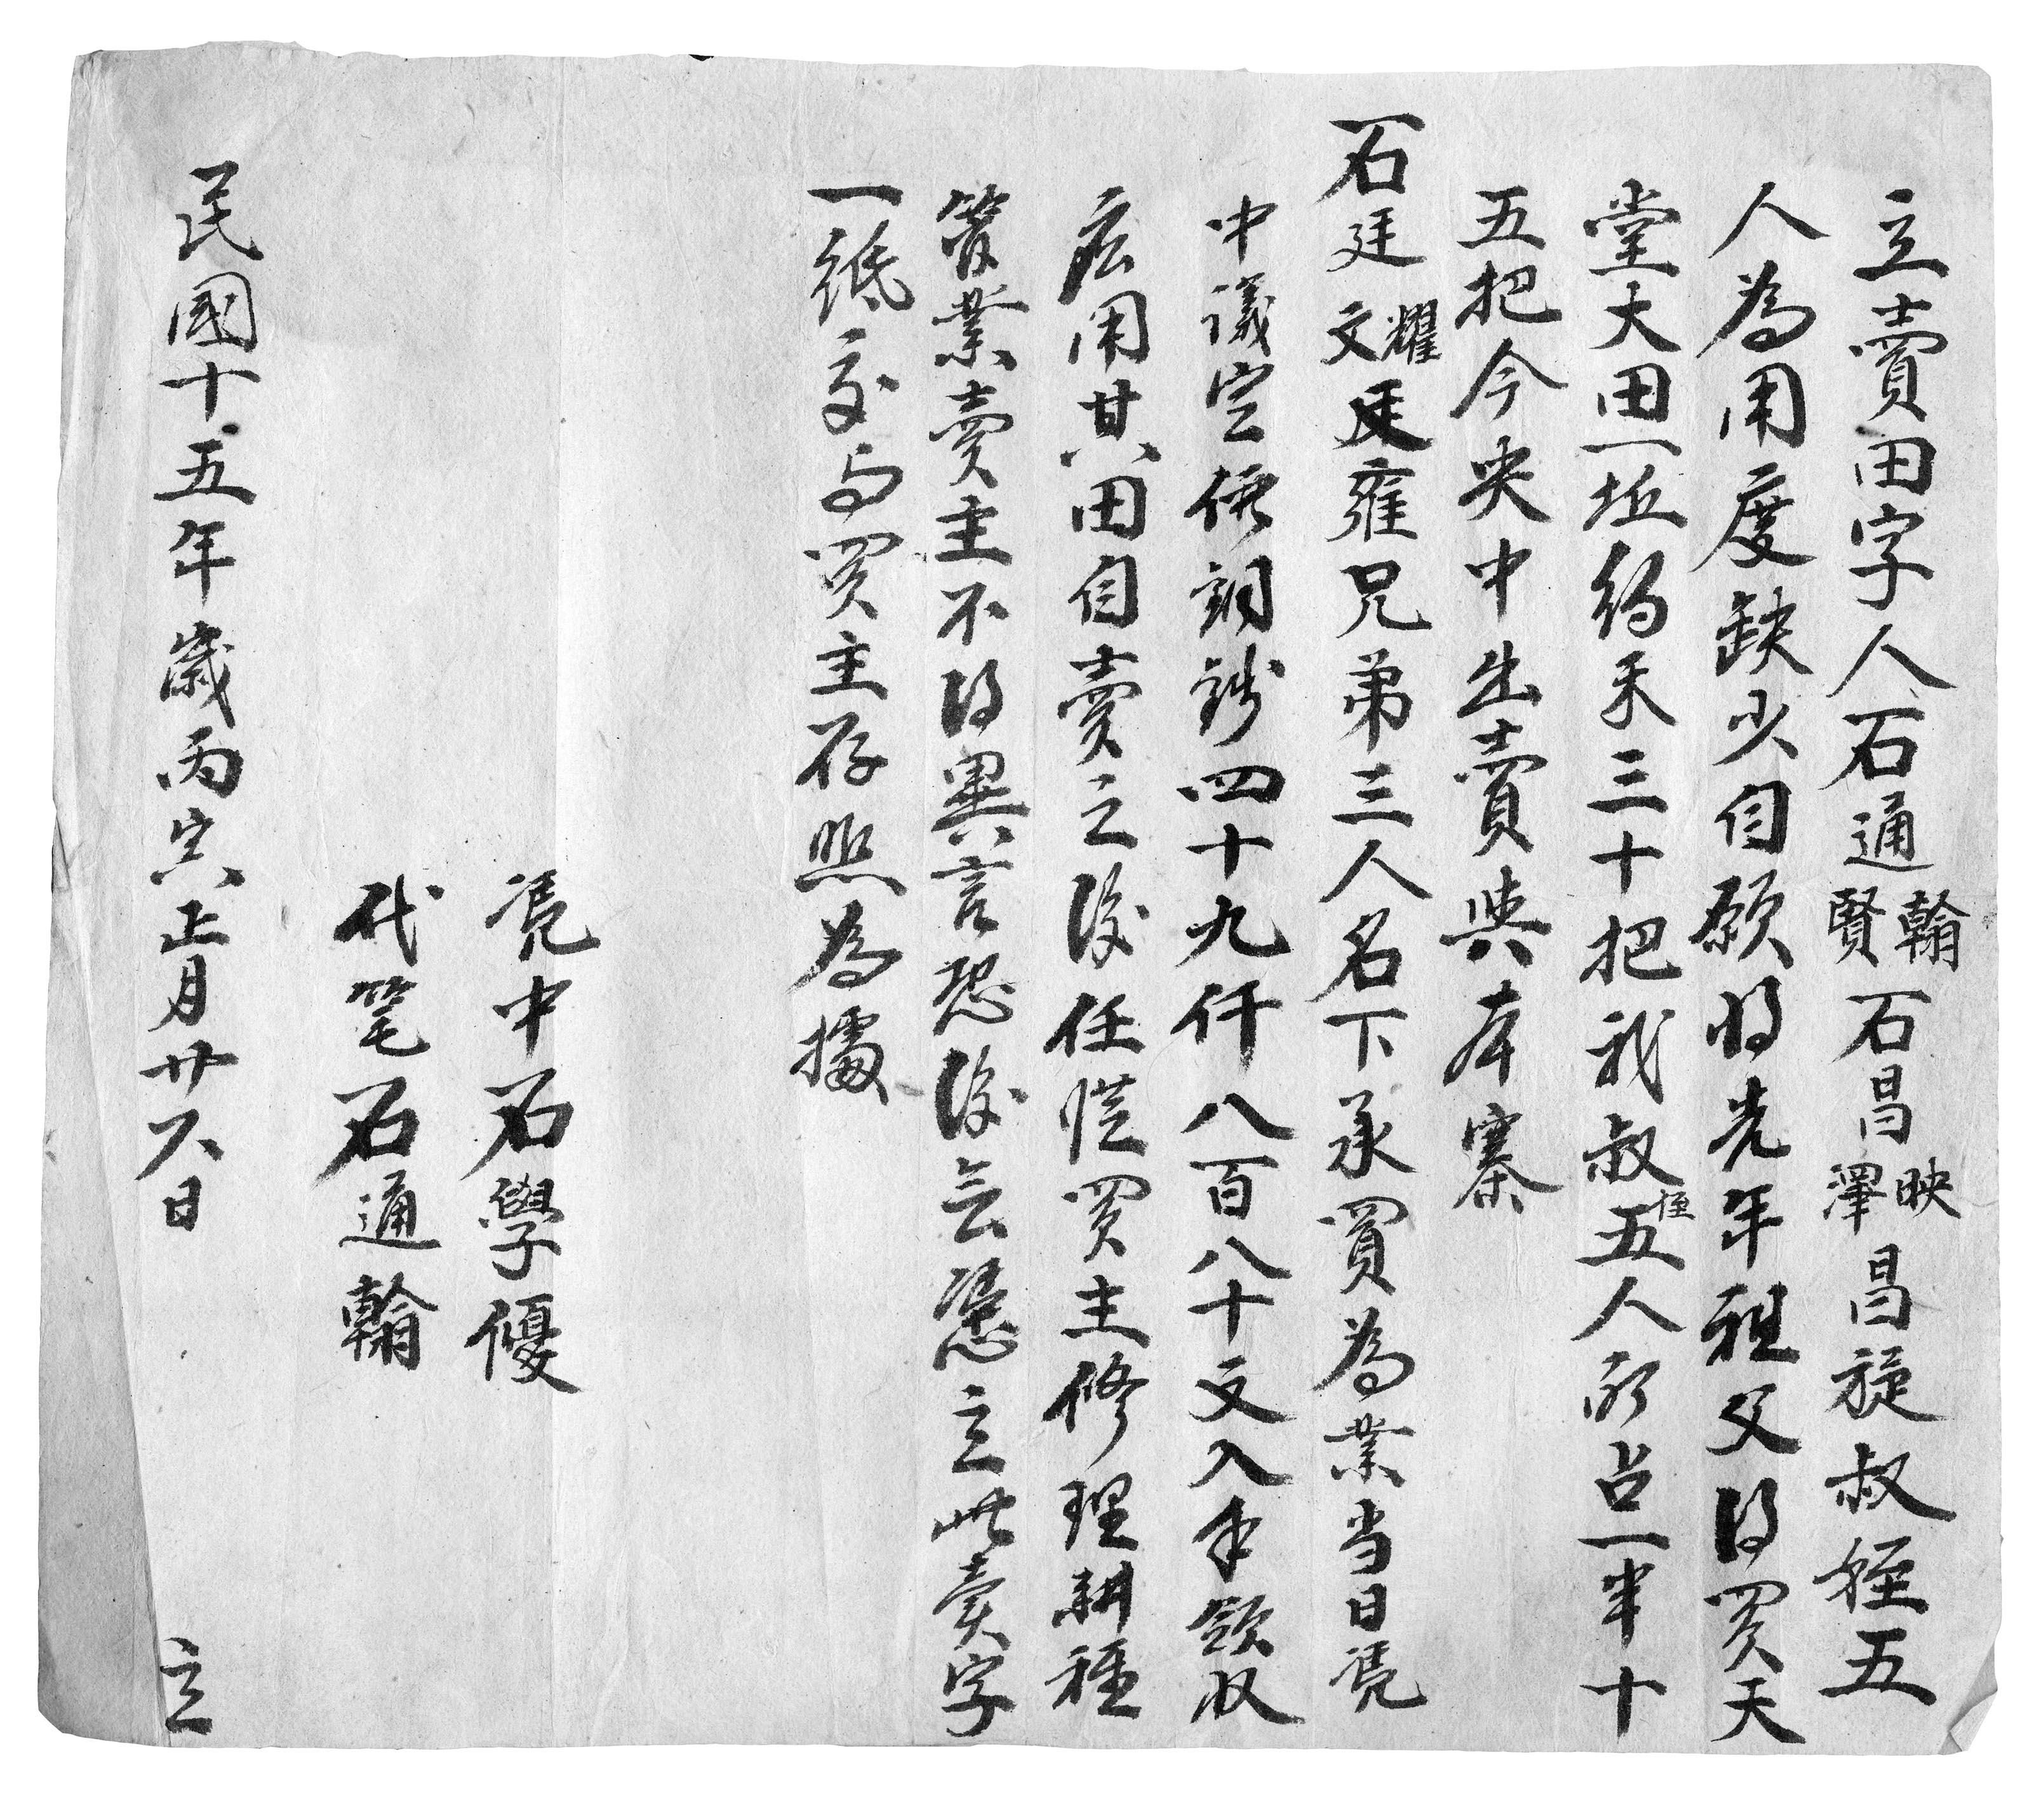 立賣田字人石通翰賢石昌映澤昌旋叔姪五
人為用度缺少自愿将先年祖父得買天
堂大田一坵約禾三十把我叔姪五人所占一半十
五把今央中出賣與本寨
石廷耀文廷雍兄弟三人名下承買為業当日凴
中議定價銅鈔四十九仟八百八十文入手領收
应用其田自賣之後任從買主修理耕種
管業賣主不得異言恐後無憑立此賣字
一紙交与買主存照為據
凴中石學優
代筆石通翰
民國十五年歲丙寅正月廿六日 立